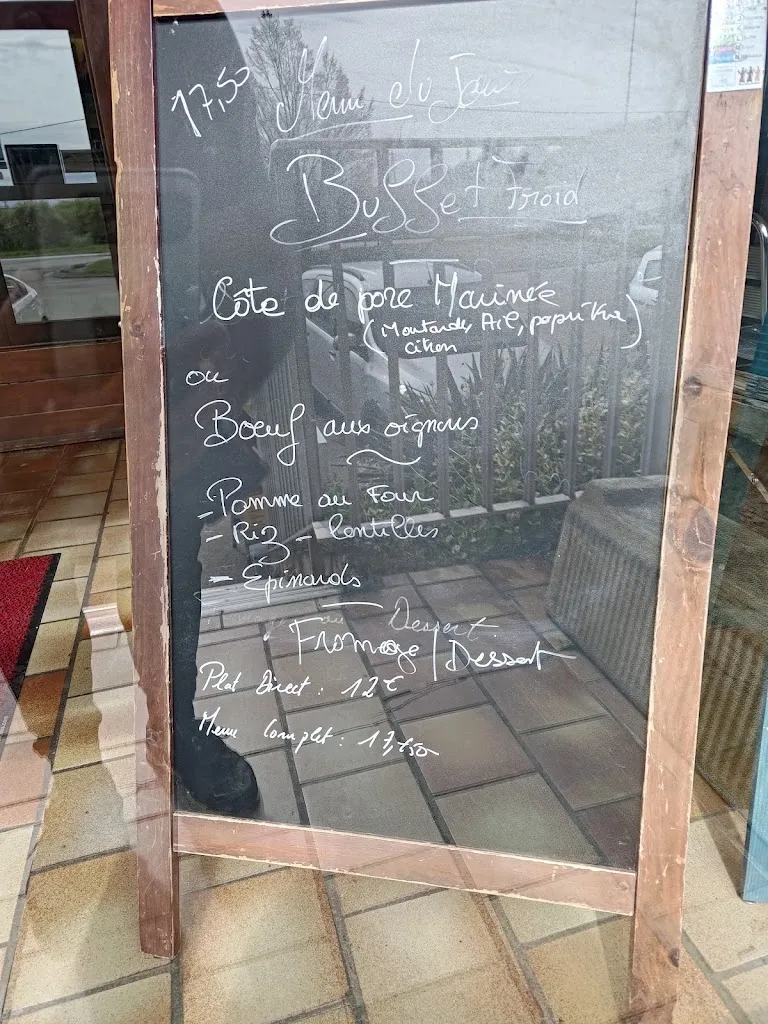 17,50 Menu du Jour
Buffet Froid
Côte de porc Marinée
(Moutarde, Ail, paprika
citron)
ou
Boeuf aux oignons
- Pomme au Four
- Riz - lentilles
- Epinards
Dessert
Fromage / Dessert
Plat Direct : 12€
Menu Complet : 17,50